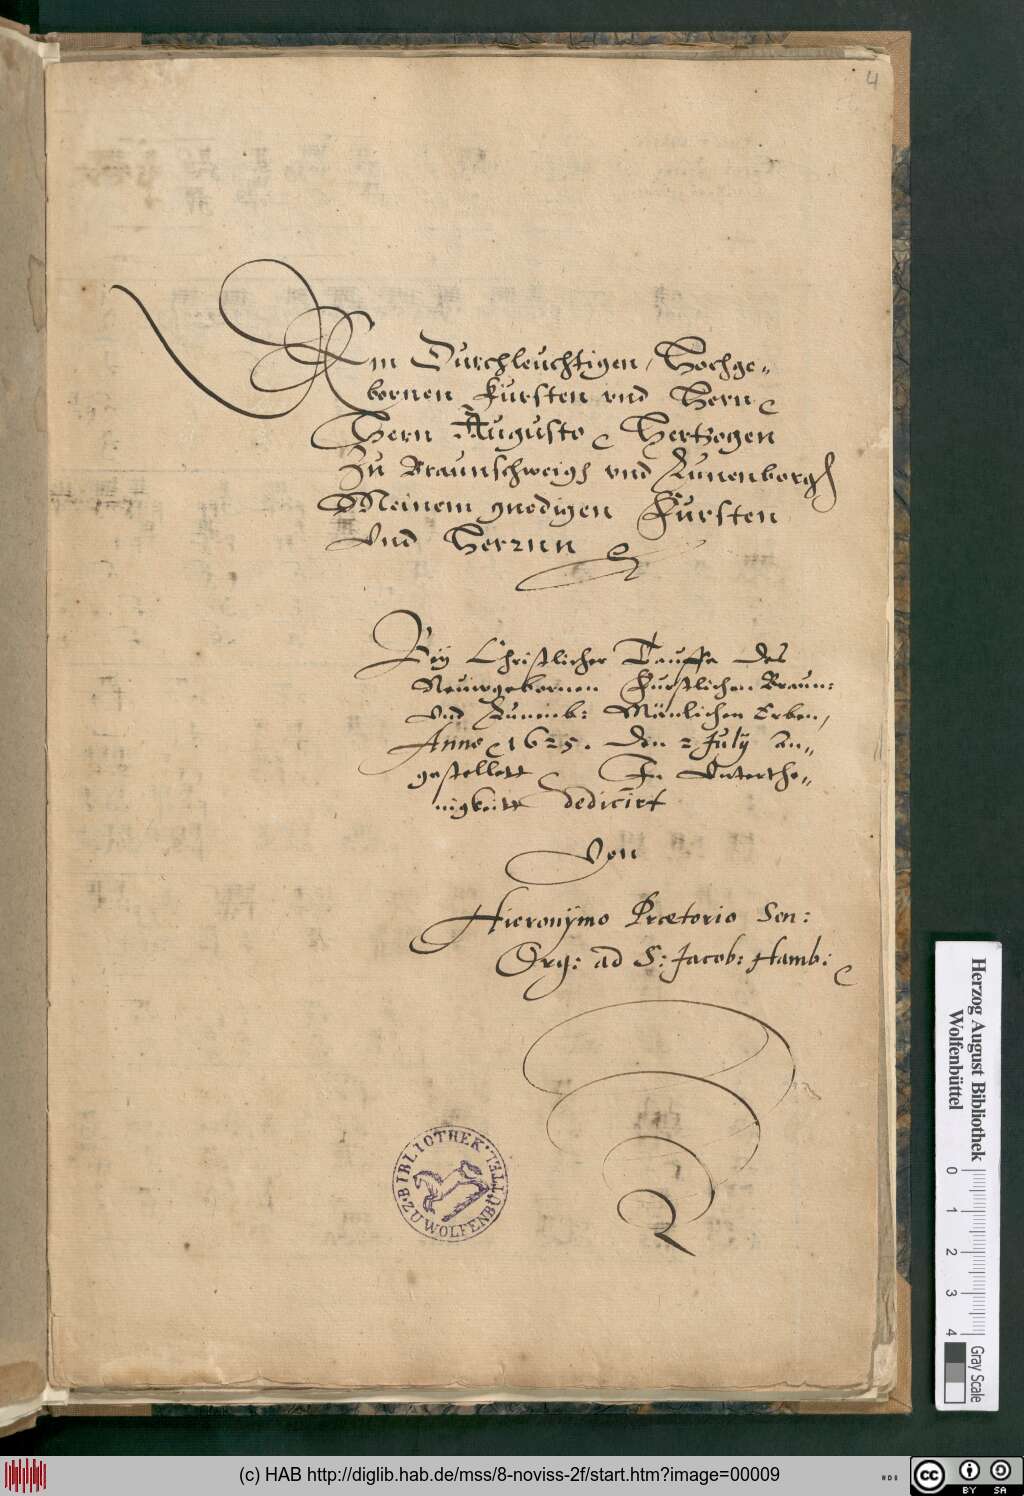 4
Dem Durchleuchtigen, Hochge„
bornen Fürsten vnd Hern
Hern Augusto Hertzogen
Zu Braunschweig vnd Lunenborgh
Meinem gnedigen Fürsten
Vnd Herrnn
Beÿ Christlicher Tauffe des
Neuwgebornen Furstlichen Braun:
vnd Lunenb: Mänlichen Erben,
Anno 1625. den 2 Julÿ an„
gestellett In Vnterthe„
nigkeitt dedicirt
Von
Hieronÿmo Prætorio Sen:
Org: ad S: Jacob: Hamb:
BIBLIOTHEK
ZU WOLFENBÜTTEL.
Herzog August Bibliothek
Wolfenbüttel
0 1 2 3 4
Gray Scale
(c) HAB http://diglib.hab.de/mss/8-noviss-2f/start.htm?image=00009
cc BY SA